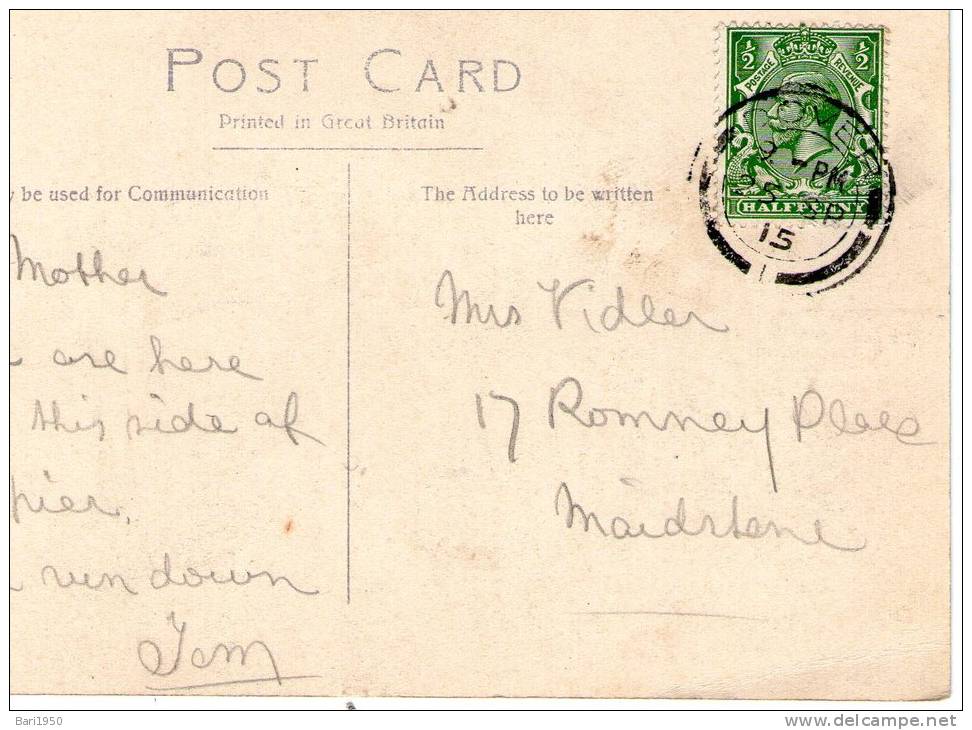 POST CARD
Printed in Great Britain
be used for Communication
The Address to be written
here
½ ½
POSTAGE REVENUE
HALFPENNY
DOVER
7 PM
5 SP
15
1
Mother
are here
this side of
pier.
run down
Tom
Mrs Vidler
17 Romney Place
Maidstone
Bari1950
www.delcampe.net